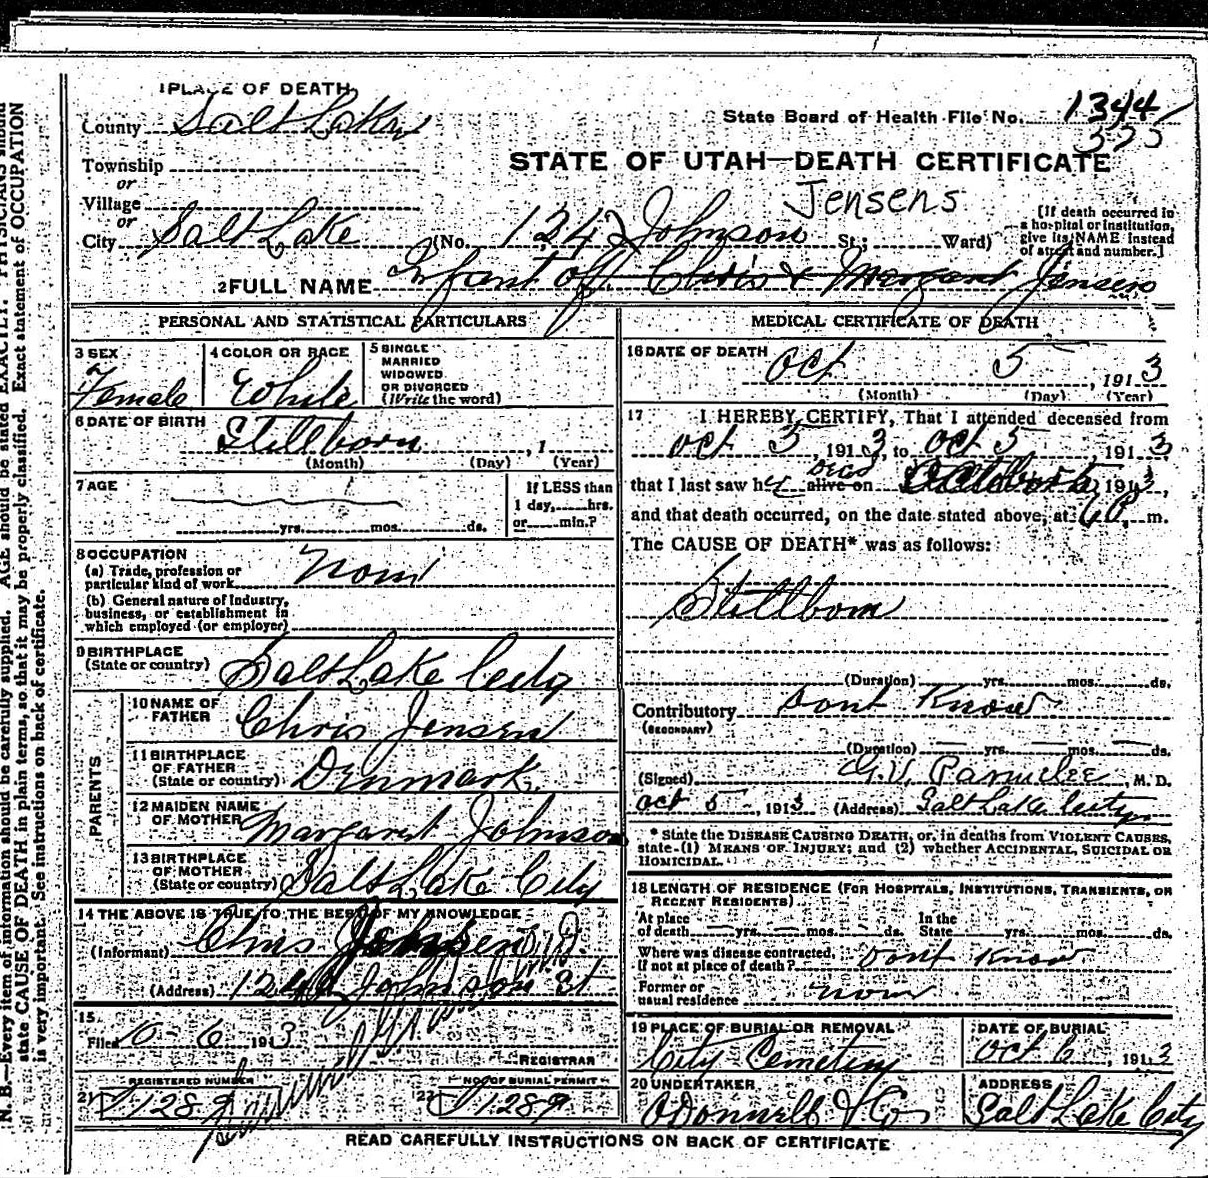 1 PLACE OF DEATH
County Salt Lake
State Board of Health File No. 1344
STATE OF UTAH—DEATH CERTIFICATE
Township
or
Village
or
City Salt Lake (No. 124 Johnson St.; Ward)
Jensens
[If death occurred in a hospital or institution, give its NAME instead of street and number.]
2 FULL NAME Infant of Chris & Margaret Jensens
PERSONAL AND STATISTICAL PARTICULARS
3 SEX
Female
4 COLOR OR RACE
White
5 SINGLE
MARRIED
WIDOWED
OR DIVORCED
(Write the word)
6 DATE OF BIRTH
Stillborn , 1
(Month) (Day) (Year)
7 AGE
yrs. mos. ds.
If LESS than
1 day, hrs.
or min.?
8 OCCUPATION
(a) Trade, profession or
particular kind of work
(b) General nature of industry,
business, or establishment in
which employed (or employer)
9 BIRTHPLACE
(State or country) Salt Lake City
PARENTS
10 NAME OF
FATHER Chris Jensen
11 BIRTHPLACE
OF FATHER
(State or country) Denmark
12 MAIDEN NAME
OF MOTHER Margaret Johnson
13 BIRTHPLACE
OF MOTHER
(State or country) Salt Lake City
14 THE ABOVE IS TRUE TO THE BEST OF MY KNOWLEDGE
(Informant) Chris
(Address) Johnson St
15
Filed 10-6 1913
REGISTRAR
REGISTERED NUMBER
21 1289
NO. OF BURIAL PERMIT
22 1289
MEDICAL CERTIFICATE OF DEATH
16 DATE OF DEATH
Oct 5 , 1913
(Month) (Day) (Year)
17 I HEREBY CERTIFY, That I attended deceased from
Oct 5 , 1913, to Oct 5 , 1913
that I last saw h alive on 1913,
and that death occurred, on the date stated above, at m.
The CAUSE OF DEATH* was as follows:
Stillborn
(Duration) yrs. mos. ds.
Contributory Dont Know
(SECONDARY)
(Duration) yrs. mos. ds.
(Signed) M. D.
Oct 5 - 1913 (Address) Salt Lake City
* State the DISEASE CAUSING DEATH, or, in deaths from VIOLENT CAUSES,
state (1) MEANS OF INJURY; and (2) whether ACCIDENTAL, SUICIDAL OR
HOMICIDAL.
18 LENGTH OF RESIDENCE (FOR HOSPITALS, INSTITUTIONS, TRANSIENTS, OR
RECENT RESIDENTS)
At place
of death yrs. mos. ds.
In the
State yrs. mos. ds.
Where was disease contracted,
if not at place of death? Dont Know
Former or
usual residence
19 PLACE OF BURIAL OR REMOVAL
City Cemetery
DATE OF BURIAL
Oct 6 , 1913
20 UNDERTAKER
ODonnell & Co
ADDRESS
Salt Lake City
READ CAREFULLY INSTRUCTIONS ON BACK OF CERTIFICATE
N. B.—Every item of information should be carefully supplied. AGE should be stated EXACTLY. PHYSICIANS should
state CAUSE OF DEATH in plain terms, so that it may be properly classified. Exact statement of OCCUPATION
is very important. See instructions on back of certificate.